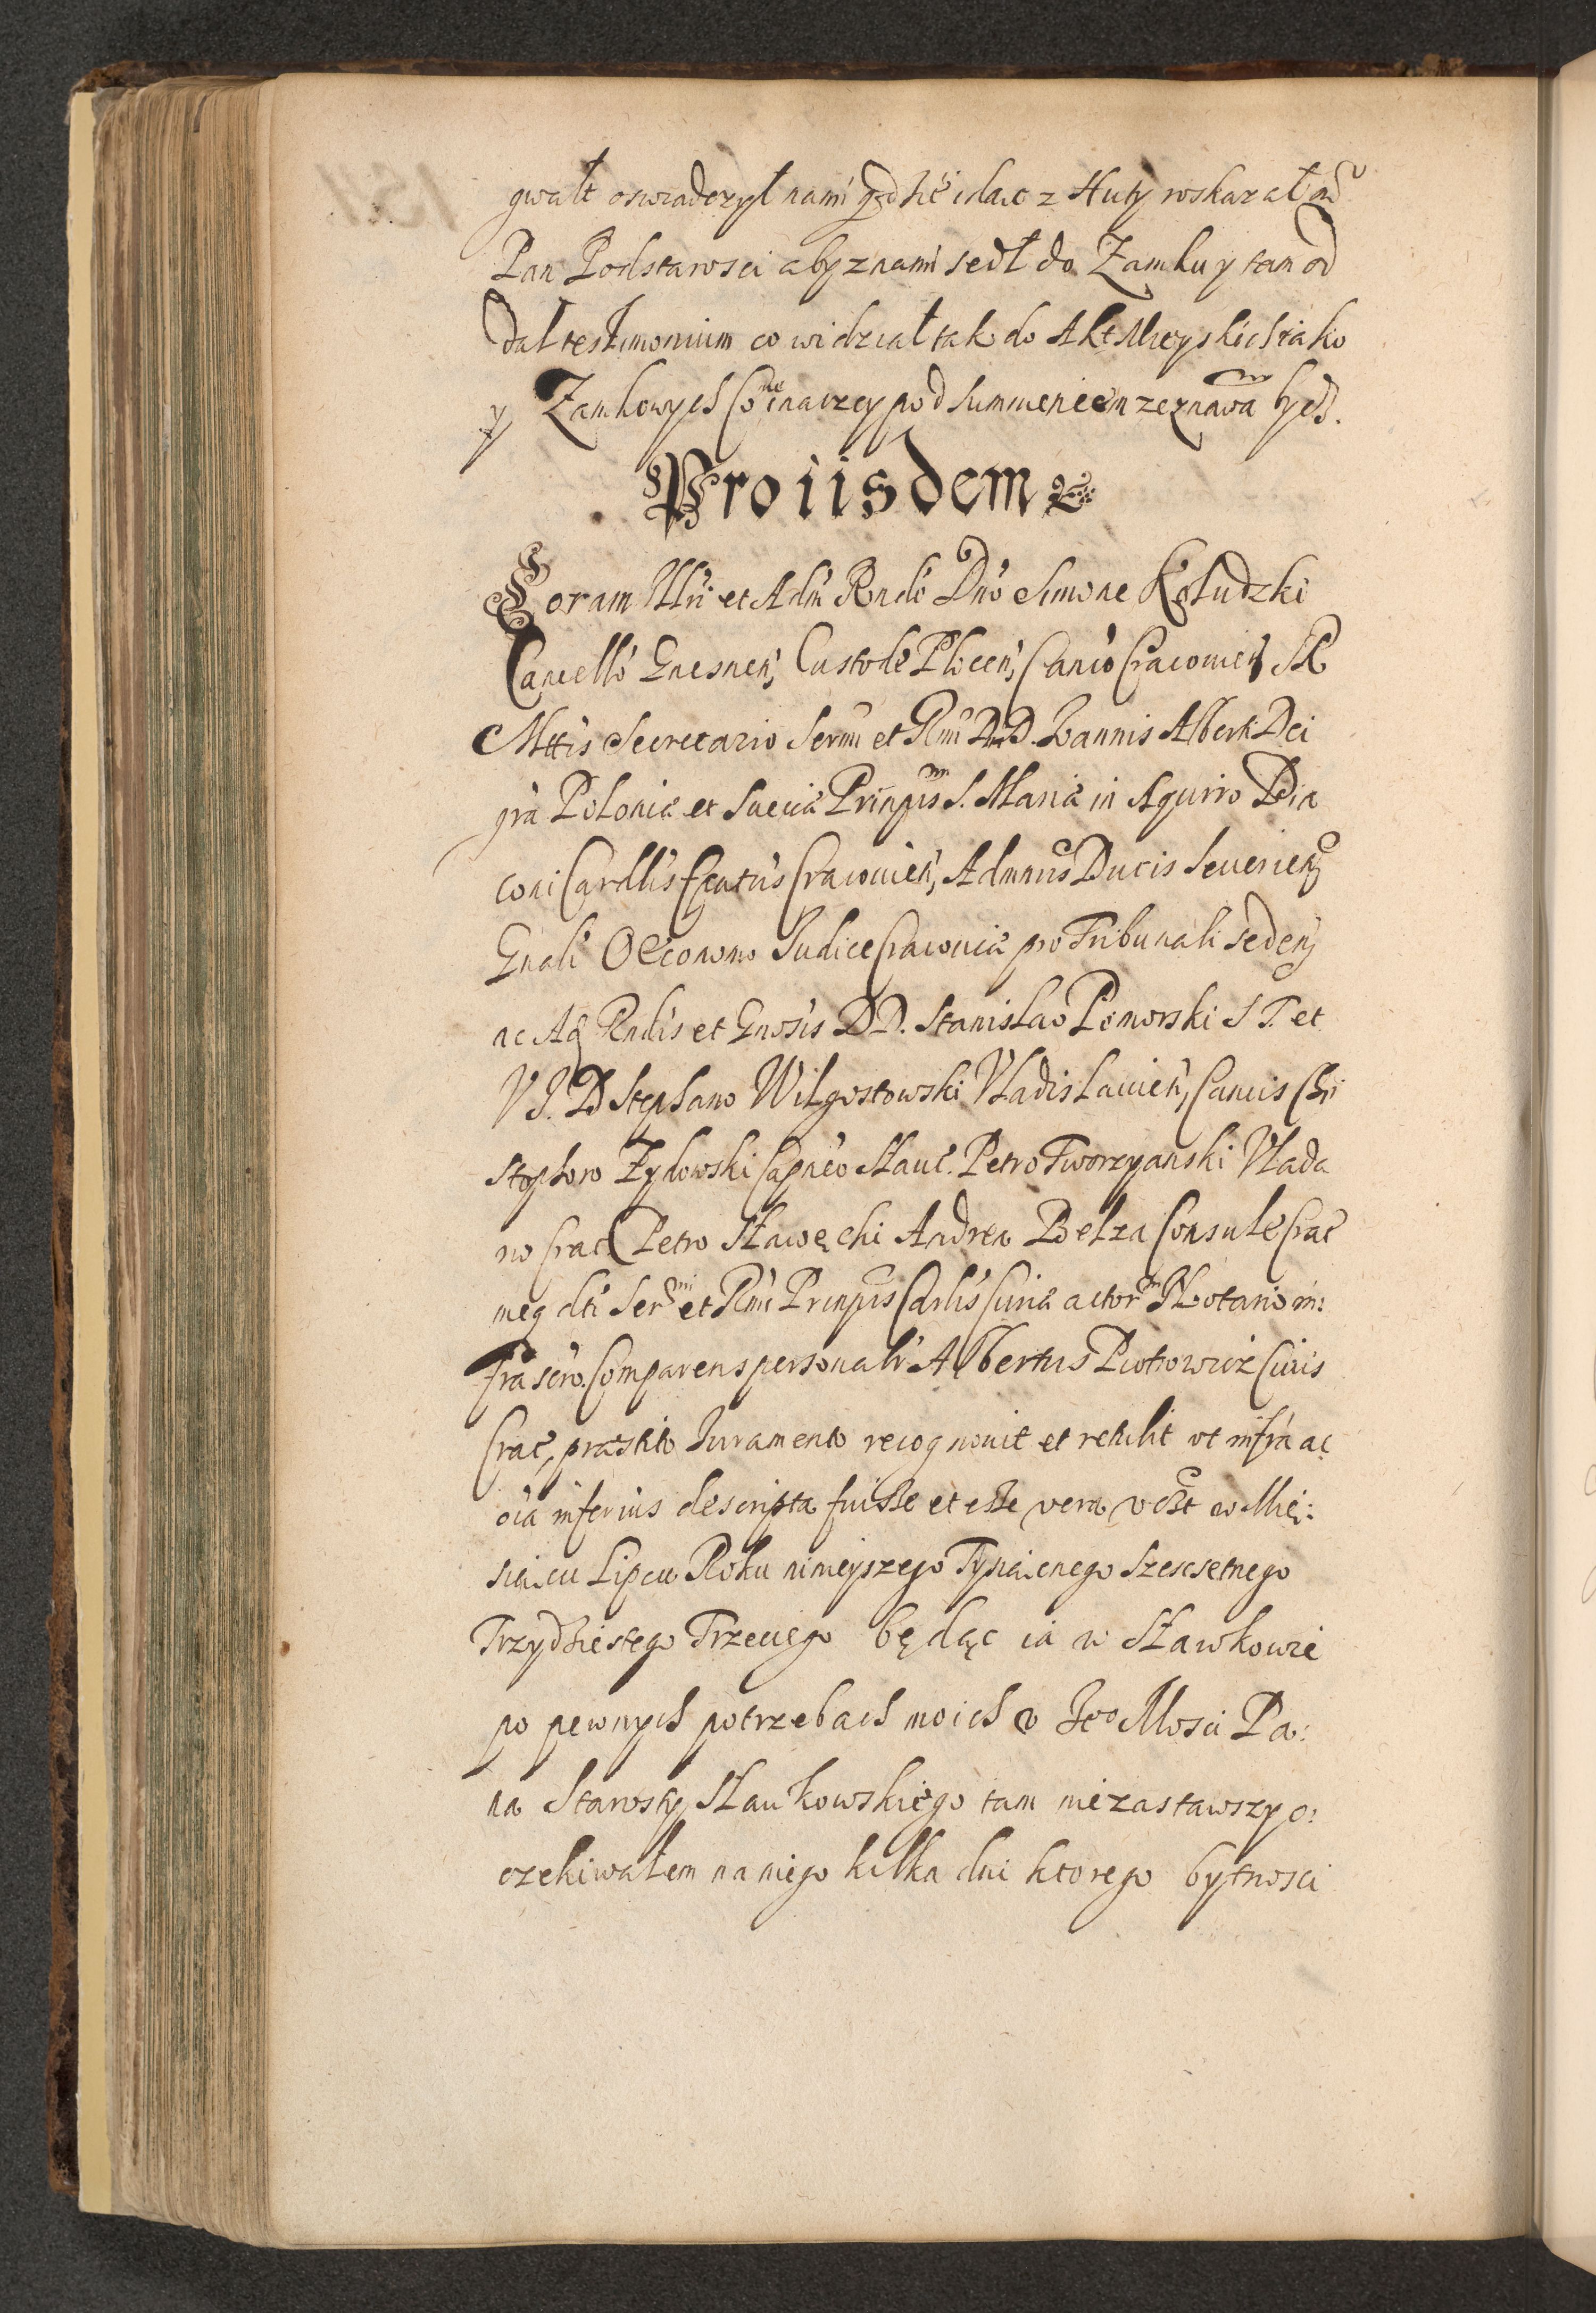 gwałt oswiadczył nami gdzie idac z Huty roskazał
Pan Podstarosci aby z nami sedł do Zamku y tam od
dał testimonium co widział tak do Akt Mieyskich iako
y Zamkowych Co inaczey pod Sumnieniem zeznawa
Pro iisdem
Coram Illri et Adm Rndo Dno Simone Kołudzki
Cancello Gnesnen, Custode Plocen, Canco Cracouien SR
Mttis Secretario Sermi et Rmi DD. Ioannis Alberti Dei
gra Poloniæ et Sueciæ Prinpis S. Mariæ in Aquiro Dia
coni Cardlis Epatus Cracouien, Admnris Ducis Seuerien
Gnali Oeconomo Iudice Cracouiæ pro Tribunali seden
ac Adm Rndis et Gnosis DD. Stanislao Pomorski S T. et
V I. D Stephano Wilgostowski Vladislauien, Cancis Chri
stophoro Zydowski Capneo Slauc. Petro Tworzyanski Vlada
no Crac Petro Sławęcki Andrea Belza Consule Crac
meq dti Sermi et Rmi Prinpis Cardlis Curiæ actor Notario in:
frascro. Comparens personalr Albertus Piotrowicz Ciuis
Crac, præstito Iuramento recognouit et retulit vt infra ac
oia inferius descripta fuisse et esse vera w Mie:
siącu Lipcu Roku ninieyszego Tysiącnego Szescsetnego
Trzydziestego Trzeciego będąc ia w Sławkowie
po pewnych potrzebach moich v Ieo Mosci Pa:
na Starosty Sławkowskiego tam niezastawszy o:
czekiwałem na niego kilka dni ktorego bytnosci